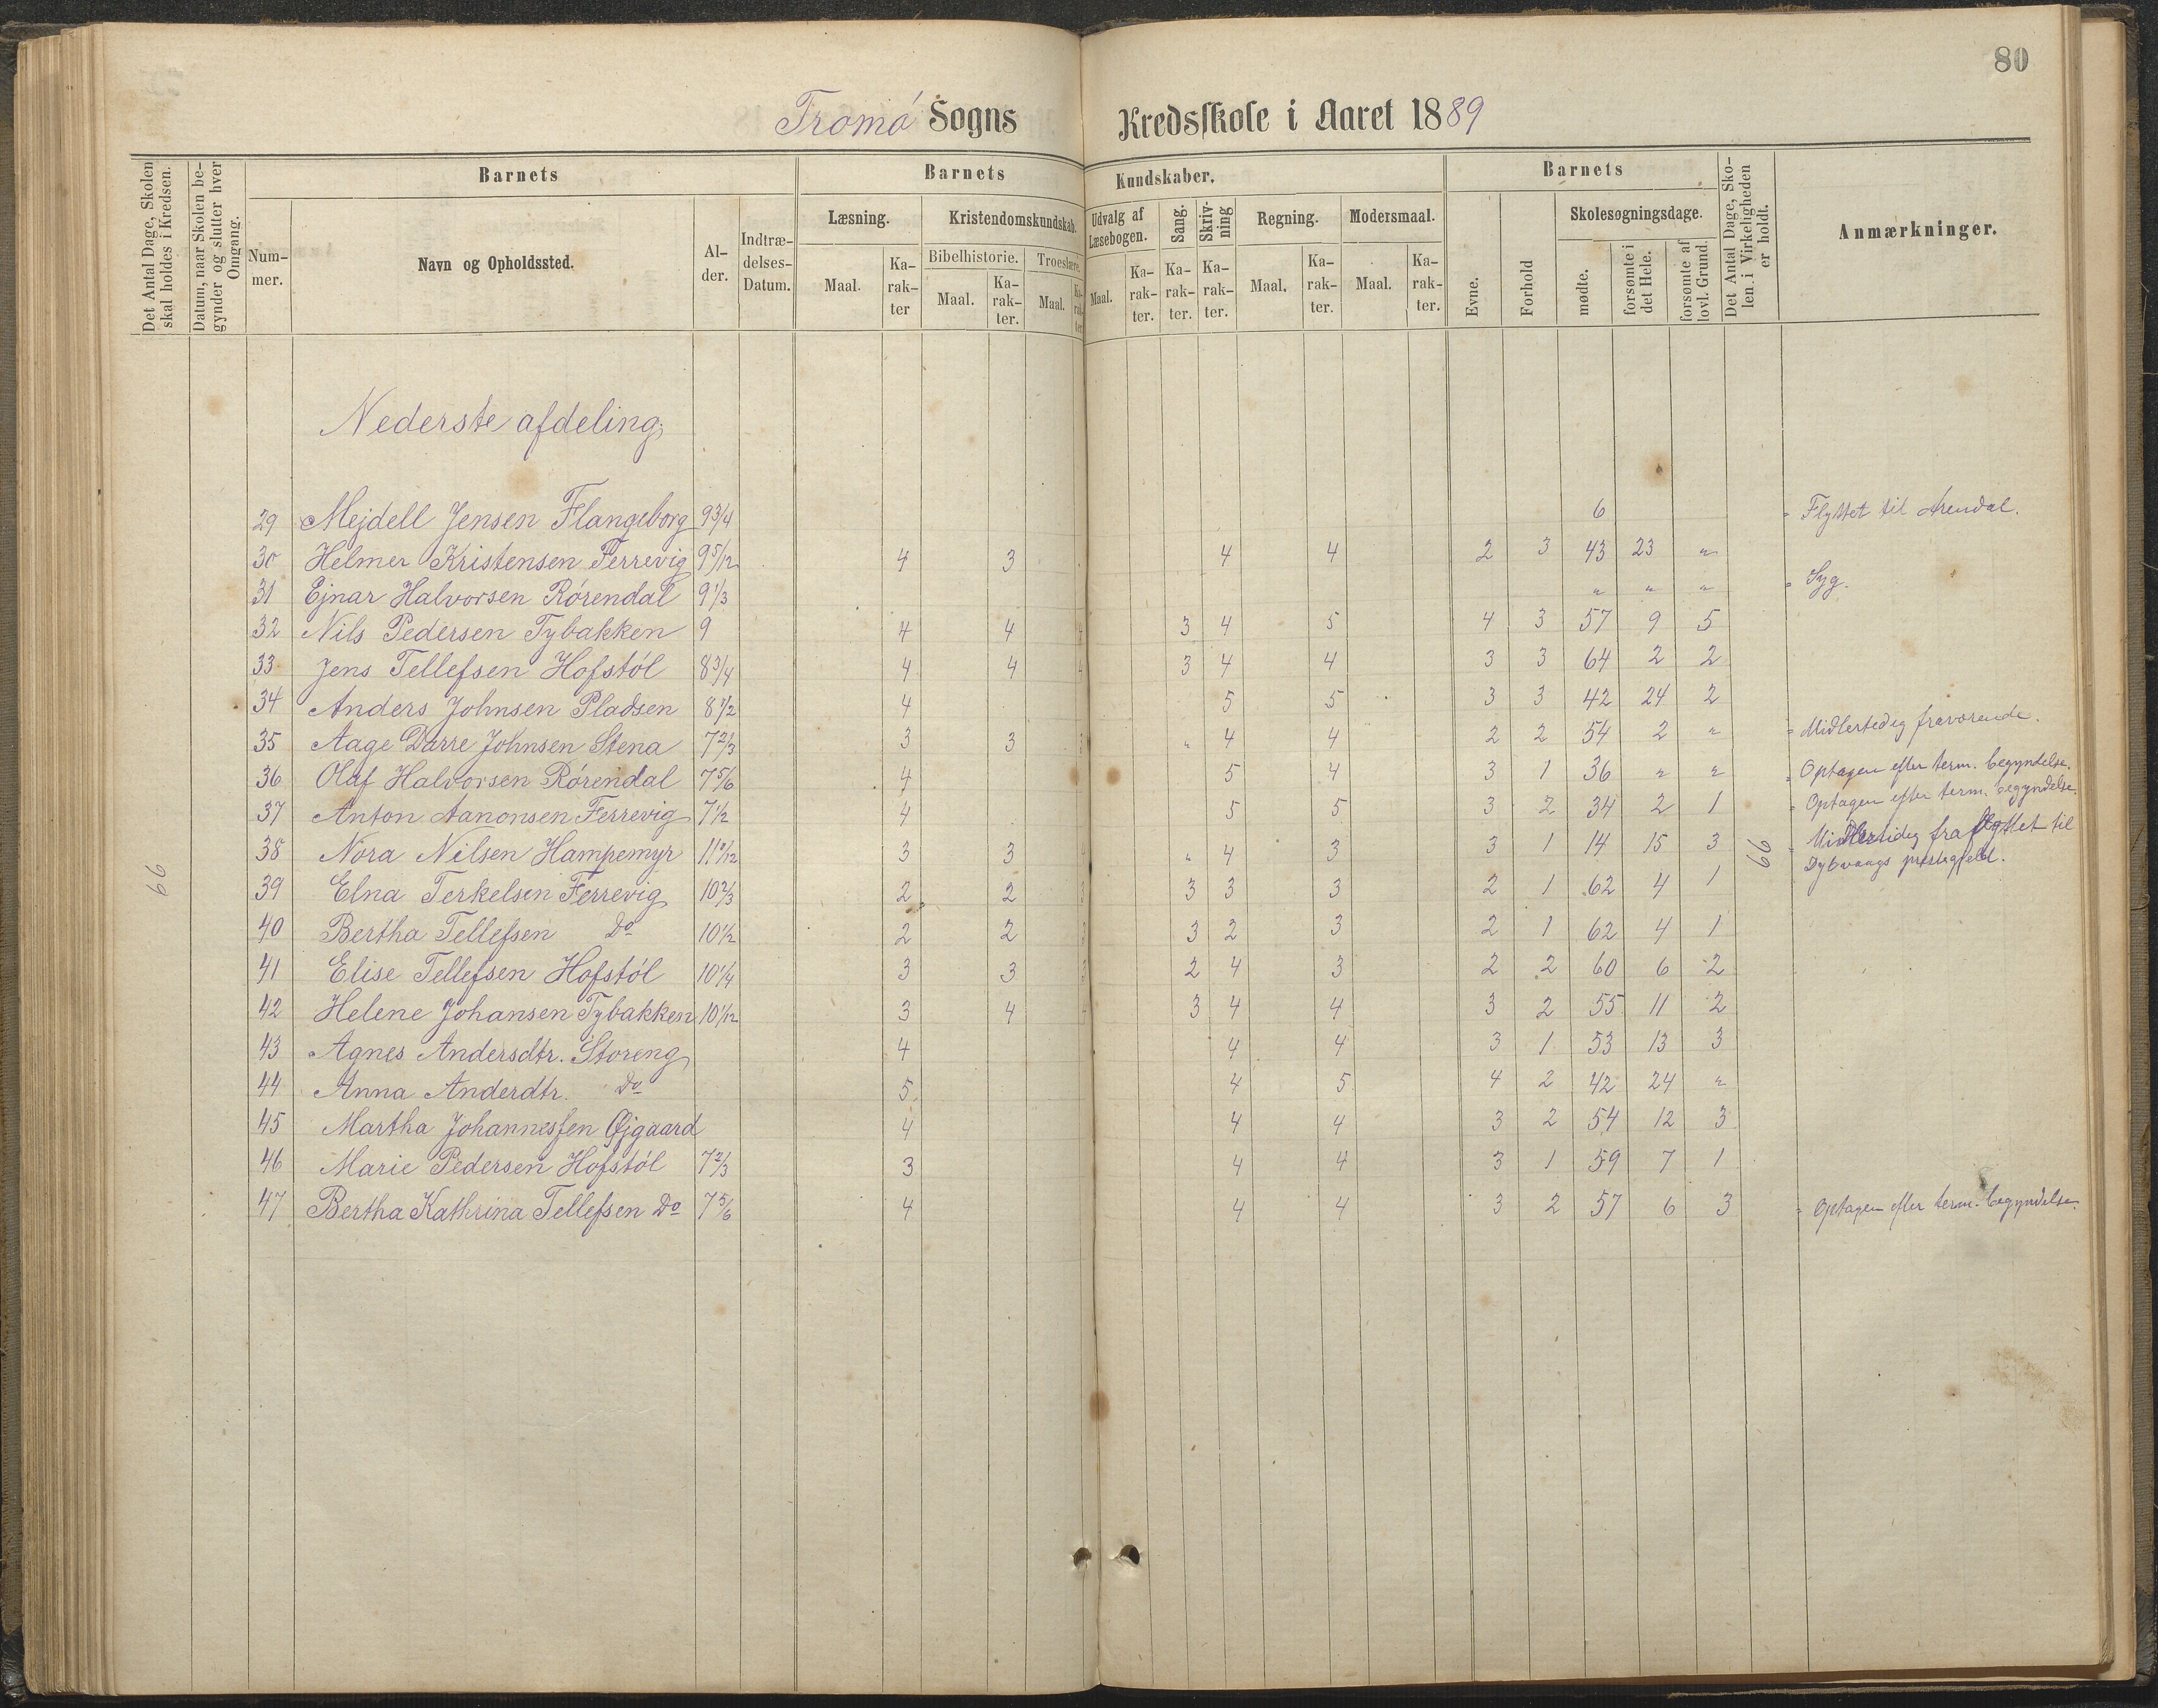 80
Tromø Sogns Kredsskole i Aaret 1889
Det Antal Dage, Skolen skal holdes i Kredsen.
Datum, naar Skolen begynder og slutter hver Omgang.
Barnets
Nummer.
Navn og Opholdssted.
Alder.
Indtrædelses-Datum.
Barnets Kundskaber.
Læsning.
Maal.
Karakter
Kristendomskundskab.
Bibelhistorie.
Maal.
Karakter.
Troeslære.
Maal.
Karakter
Udvalg af Læsebogen.
Maal.
Karakter.
Sang.
Karakter.
Skrivning
Karakter.
Regning.
Maal.
Karakter.
Modersmaal.
Maal.
Karakter.
Barnets
Evne.
Forhold
Skolesøgningsdage.
mødte.
forsømte i det Hele.
forsømte af lovl. Grund.
Det Antal Dage, Skolen i Virkeligheden er holdt.
Anmærkninger.
Nederste afdeling.
66
66
29 Mejdell Jensen Flangeborg 9 3/4 6 = Flyttet til Arendal.
30 Helmer Kristensen Ferrevig 9 5/12 4 3 4 4 2 3 43 23 "
31 Ejnar Halvorsen Rørendal 9 1/3 " " " = Syg.
32 Nils Pedersen Tybakken 9 4 4 4 3 4 5 4 3 57 9 5
33 Jens Tellefsen Hofstøl 8 3/4 4 4 4 3 4 4 3 3 64 2 2
34 Anders Johnsen Pladsen 8 1/2 4 5 5 3 3 42 24 2
35 Aage Darre Johnsen Stena 7 2/3 3 3 3 " 4 4 2 2 54 2 " = Midlertedig fraværende.
36 Olaf Halvorsen Rørendal 7 5/6 4 5 4 3 1 36 " " = Optagen efter term. begyndelse.
37 Anton Aanonsen Ferrevig 7 1/2 4 5 5 3 2 34 2 1 = Optagen efter term. begyndelse.
38 Nora Nilsen Hampemyr 3 3 " 4 3 3 1 14 15 3 = Midlertidig fraflyttet til
Dybvaags prestegjeld.
39 Elna Terkelsen Ferrevig 10 2/3 2 2 3 3 3 3 2 1 62 4 1
40 Bertha Tellefsen Do 10 1/2 2 2 3 3 2 3 2 1 62 4 1
41 Elise Tellefsen Hofstøl 10 1/4 3 3 3 2 4 3 2 2 60 6 2
42 Helene Johansen Tybakken 10 1/12 3 4 4 3 4 4 3 2 55 11 2
43 Agnes Andersdtr. Storeng 4 4 4 3 1 53 13 3
44 Anna Anderdtr. Do 5 4 5 4 2 42 24 "
45 Martha Johannesſen Øjgaard 4 4 4 3 2 54 12 3
46 Marie Pedersen Hofstøl 7 2/3 3 4 4 3 1 59 7 1
47 Bertha Kathrina Tellefsen Do 7 5/6 4 4 4 3 2 57 6 3 = Optagen efter term. begyndelse.